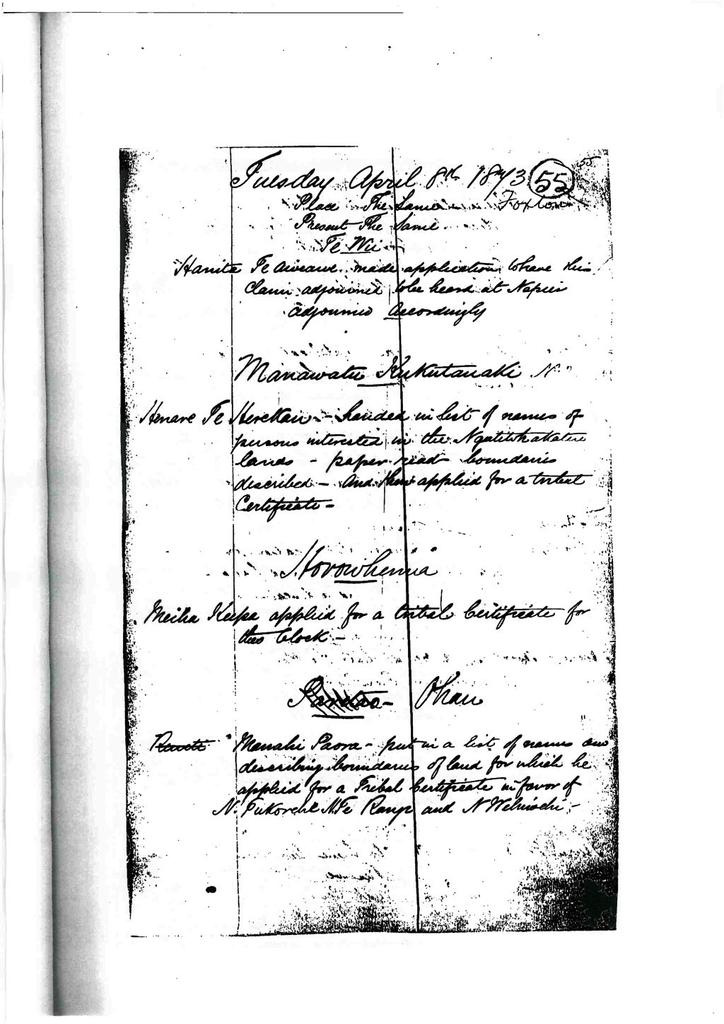 55
Tuesday April 8th 1873 55
Place The Same Foxton
Present The Same
Te Wii
Hanita Te Aweawe made application to have his
Claim adjourned to be heard at Napier
adjourned Accordingly
Manawatu Kukutauaki
Henare Te Herekau - handed in list of names of
persons interested in the Ngatiwhakatere
lands - paper read boundaries
described - And then applied for a tribal
Certificate -
Horowhenua
Meiha Keepa applied for a tribal Certificate for
this block -
Ohau
Manahi Paora - put in a list of names and
describing boundaries of land for which he
applied for a Tribal Certificate in favor of
N. Tukorehe N. Te Rangi and N Wehiwehi -